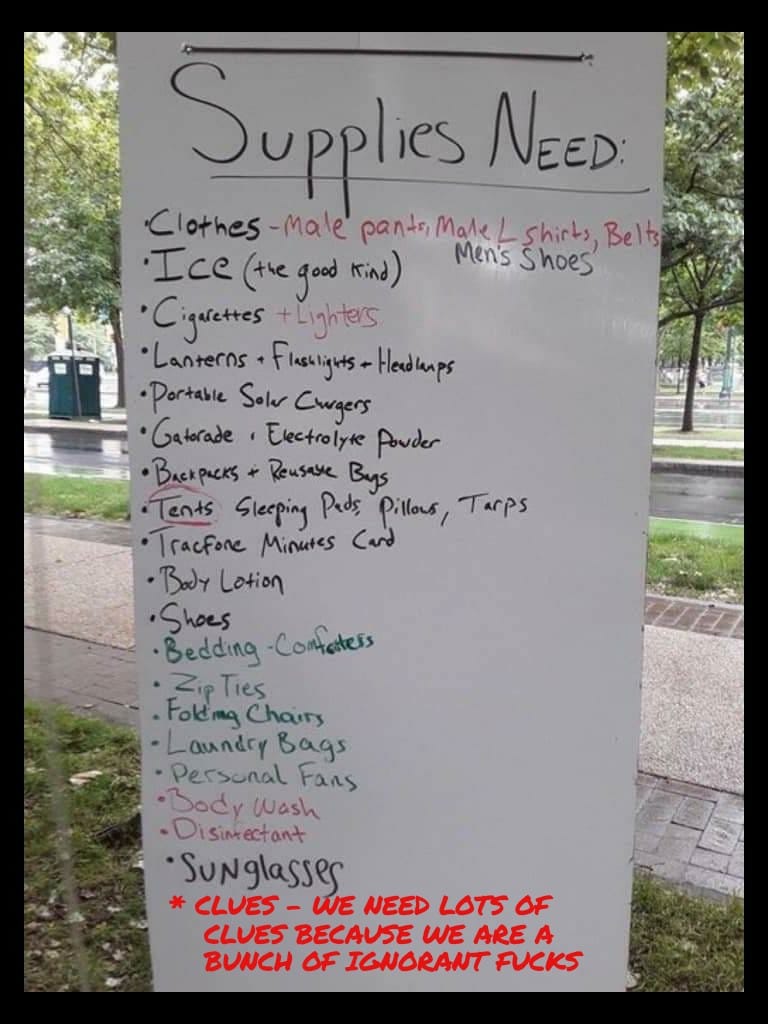 Supplies NEED:
• Clothes - Male pants, Male L shirts, Belts
Men's Shoes
• ICE (the good kind)
• Cigarettes + Lighters
• Lanterns + Flashlights + Headlamps
• Portable Solar Chargers
• Gatorade + Electrolyte Powder
• Backpacks + Reusable Bags
• Tents Sleeping Pads, Pillows, Tarps
• Tracfone Minutes Card
• Body Lotion
• Shoes
• Bedding - Comforters
• Zip Ties
• Folding Chairs
• Laundry Bags
• Personal Fans
• Body Wash
• Disinfectant
• SUNglasses
* CLUES - WE NEED LOTS OF
CLUES BECAUSE WE ARE A
BUNCH OF IGNORANT FUCKS